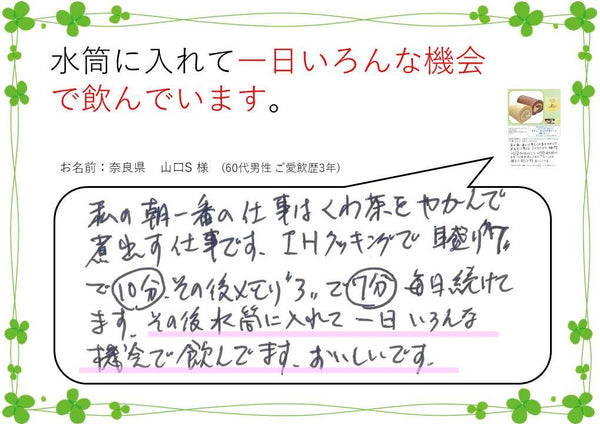 水筒に入れて一日いろんな機会
で飲んでいます。
お名前：奈良県　山口S 様　（60代男性 ご愛飲歴3年）
私の朝一番の仕事はくわ茶をやかんで
煮出す仕事です、IHクッキングで目盛り"7"
で10分、その後メモリ"3"で7分 毎日続けて
ます。その後水筒に入れて一日いろんな
機会で飲んでます、おいしいです。